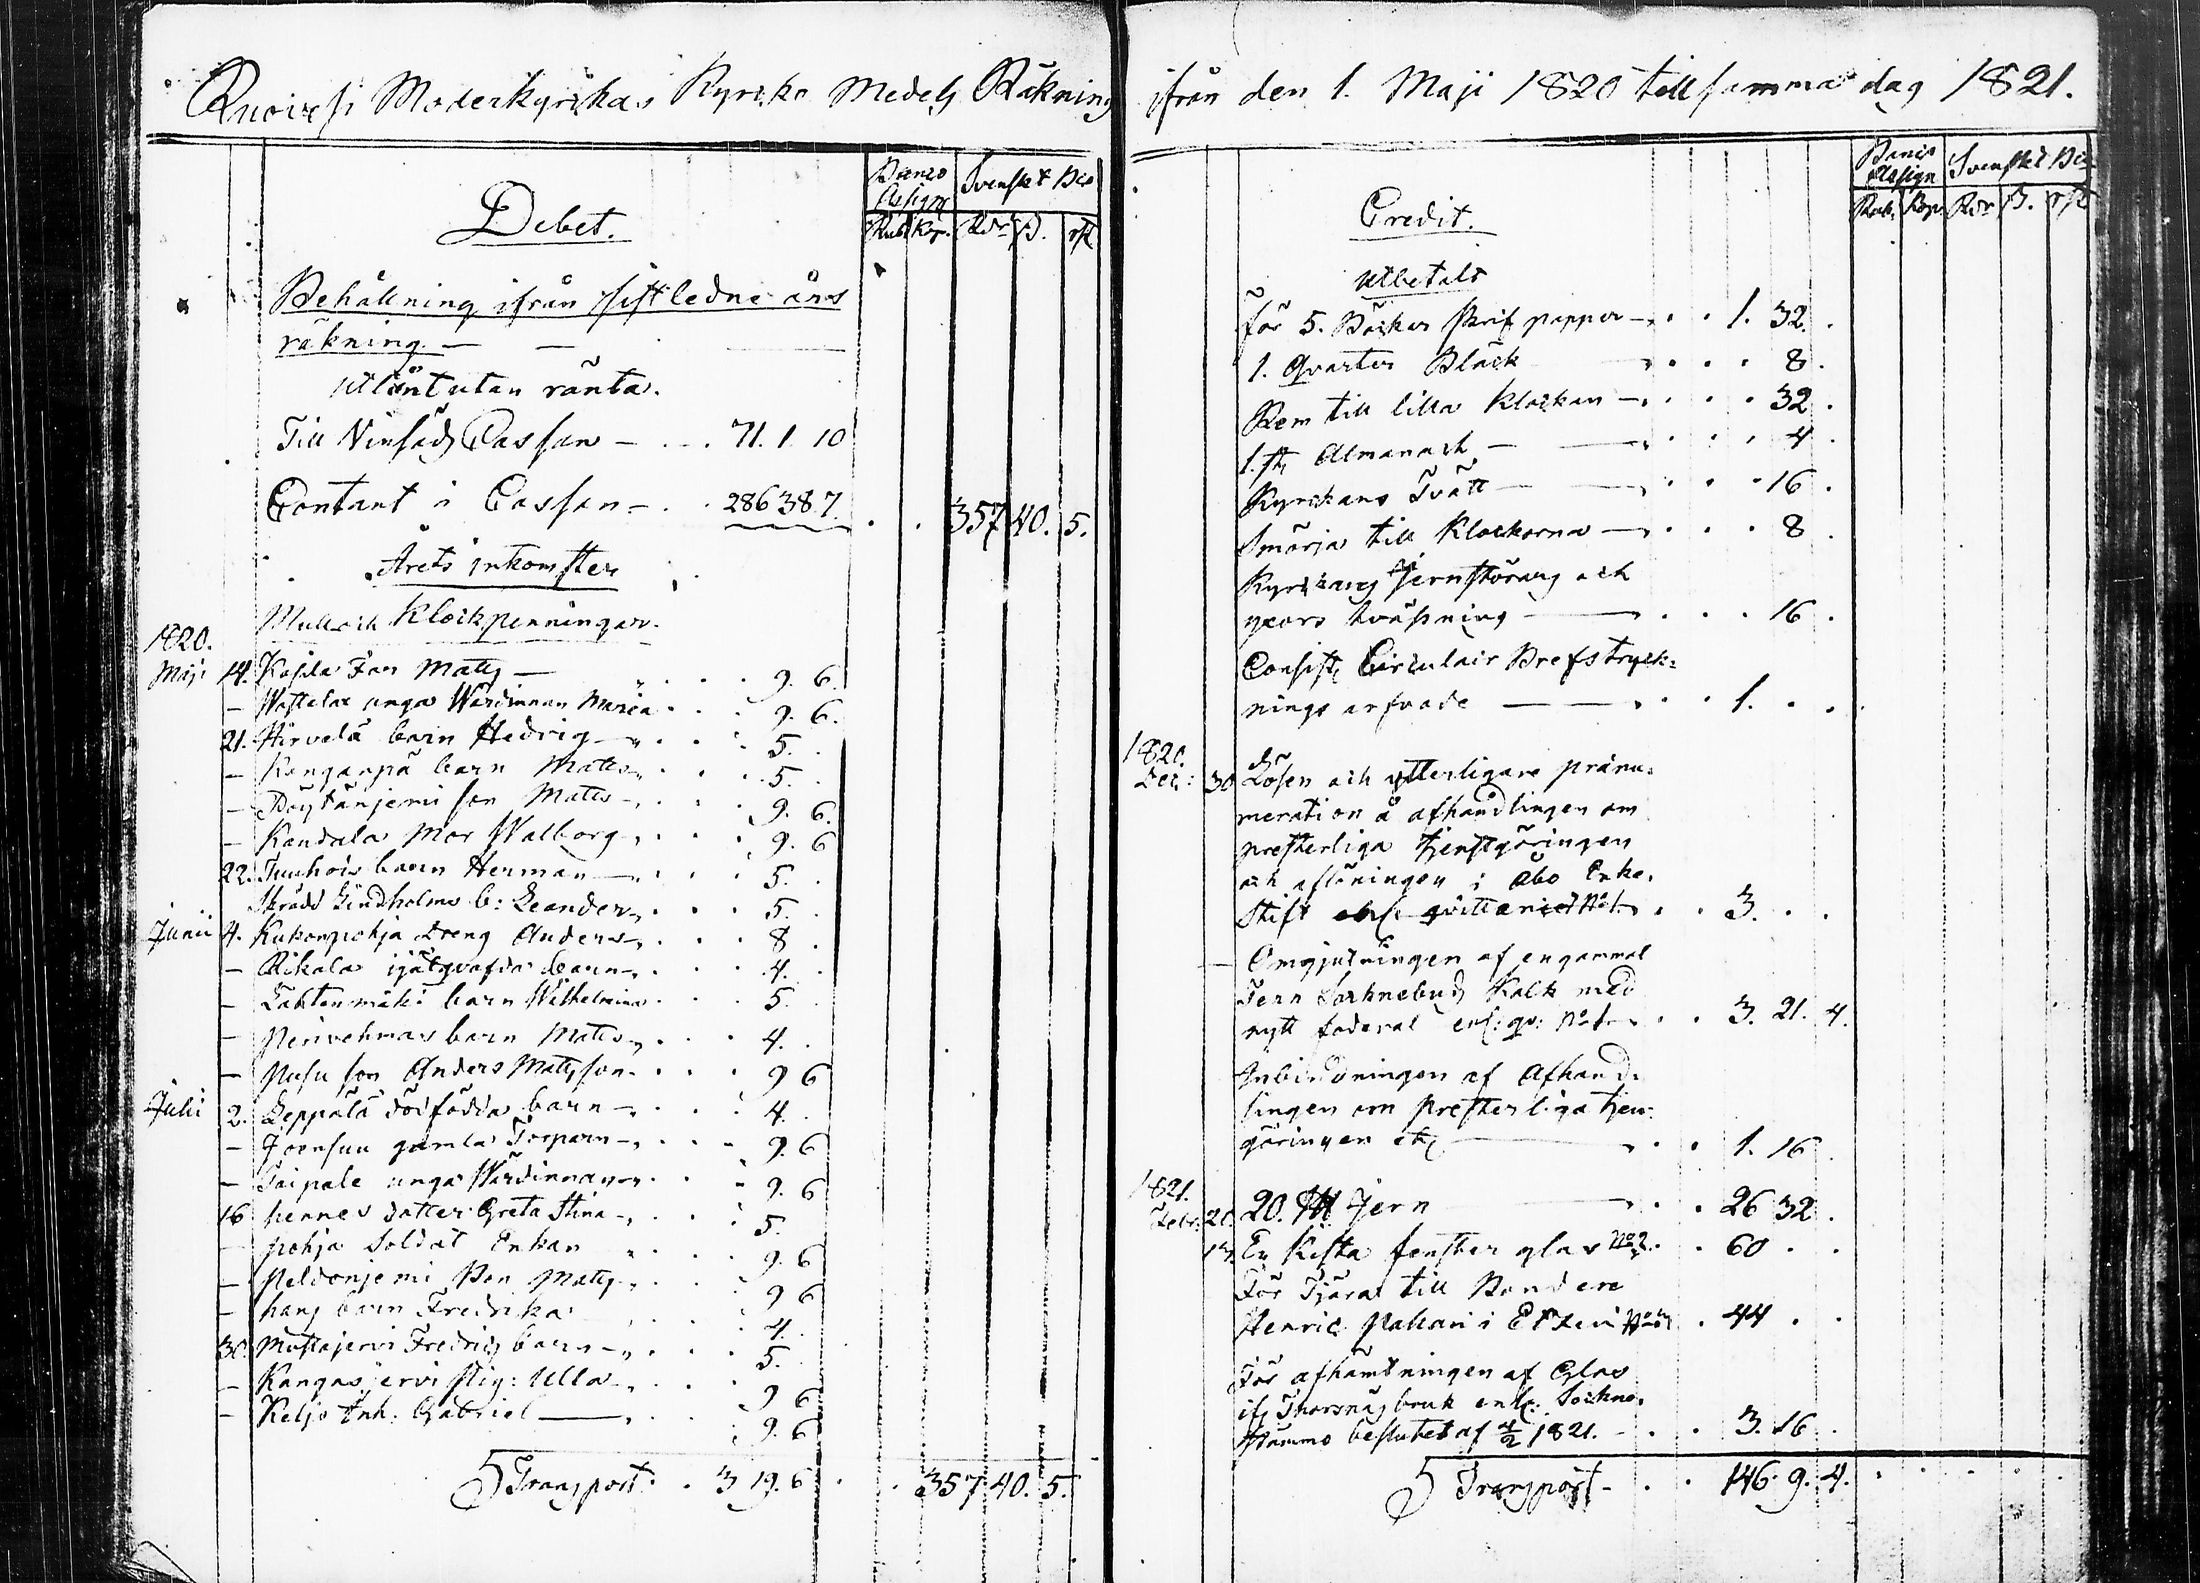 Ruovesi Moderkyrckas Kyrcko Medels Räkning ifrån den 1. Maji 1820 till samma dag 1821.
Debet.
Banco Assign Svenskt Bco
Rub. Kop. Rdr ß. rst
Behållning ifrån sistledne års
räkning. — —
Utlånt utan ränta.
Till Vinsäds Cassan — . . 71. 1. 10
Contant i Cassan — . . 286 38 7. . . 357 40. 5.
Årets inkomster
Mull och Klockpenningar.
1820.
Maji 14. Kosula Jan Matts — . . . 9. 6.
— unga Wärdinnan Maria . . . 9. 6.
21. Hirvelä barn Hedvig — . . . 5. .
— Kangaspä barn Matts — . . . 5. .
— Pöytäniemi son Matts — . . . 9. 6.
— Kandala Mor Walborg — . . . 9. 6
22. barn Herman — . . . 5. .
Skrädd Lindholms b: Leander — . . . 5. .
Junii 4. Kukonpohja Dreng Anders — . . . 8 .
— Rikala barn — . . . 4. .
— Lahtenmäki barn Wilhelmina . . . 5. .
— barn Matts — . . . 4. .
— Pusu son Anders Mattsson . . . 9 6
Julii 2. Leppälä dödfödda barn — . . . 4. .
— Joensuu gamla Torparn — . . . 9. 6
— Taipale unga Wärdinnan . . . 9. 6
16 hennes dotter Greta Stina — . . . 5. .
— pohja Soldat Enkan . . . 9. 6
— Bon Matts — . . . 9 6
— hans barn Fredrika . . . 4. .
30. Mustajervi Fredrics barn — . . . 5. .
— Kangasjervi : Ulla — . . . 9 6
— Keljo Inh. Gabriel — . . . 9. 6
Transport . . 3 19. 6 . . 357. 40. 5.
Credit.
Banco Assign Svenskt Bco
Rub. Kop. Rdr ß. rst
Utbetalt
För 5. Böcker skrif papper — . . 1. 32. .
1. Qvarter Bläck — . . . 8 .
Rem till lilla Klockan — . . . 32 .
1. st. Almanach — . . . 4 .
Kyrckans Tvätt — . . . 16 .
Smörja till Klockorna — . . . 8 .
Kyrckans Jernstörars och
— . . . 16 .
Consist. Circulair Brefs tryck-
nings arfvode — . . 1. . .
1820.
Dec: 30 Lösen och ytterligare pränu-
meration å afhandlingen om
presterliga tjenstgöringen
och aflöningen i Åbo Erke-
Stift qvittance No 1. . . 3. . .
— Omgjutningen af en gammal
Tenn Socknebuds Kalk med
nytt foderal enl: qv: No 1 . . 3. 21. 4.
Inbindningen af Afhand-
lingen om presterliga tjen-
göringen etc — . . 1. 16 .
1821.
Febr: 21. 20. ℔ Jern — . . 26 32 .
En Kista fenster glas No 2. . . 60 . .
För Tjära till Bonden
Henric i No 3 . 44 . .
För afhämtningen af Glas
ifr. Thorsnäs bruk enl. Sockne-
stämmo beslutet af 4/2 1821. — . . 3. 16 .
Transport — . . 146. 9. 4.